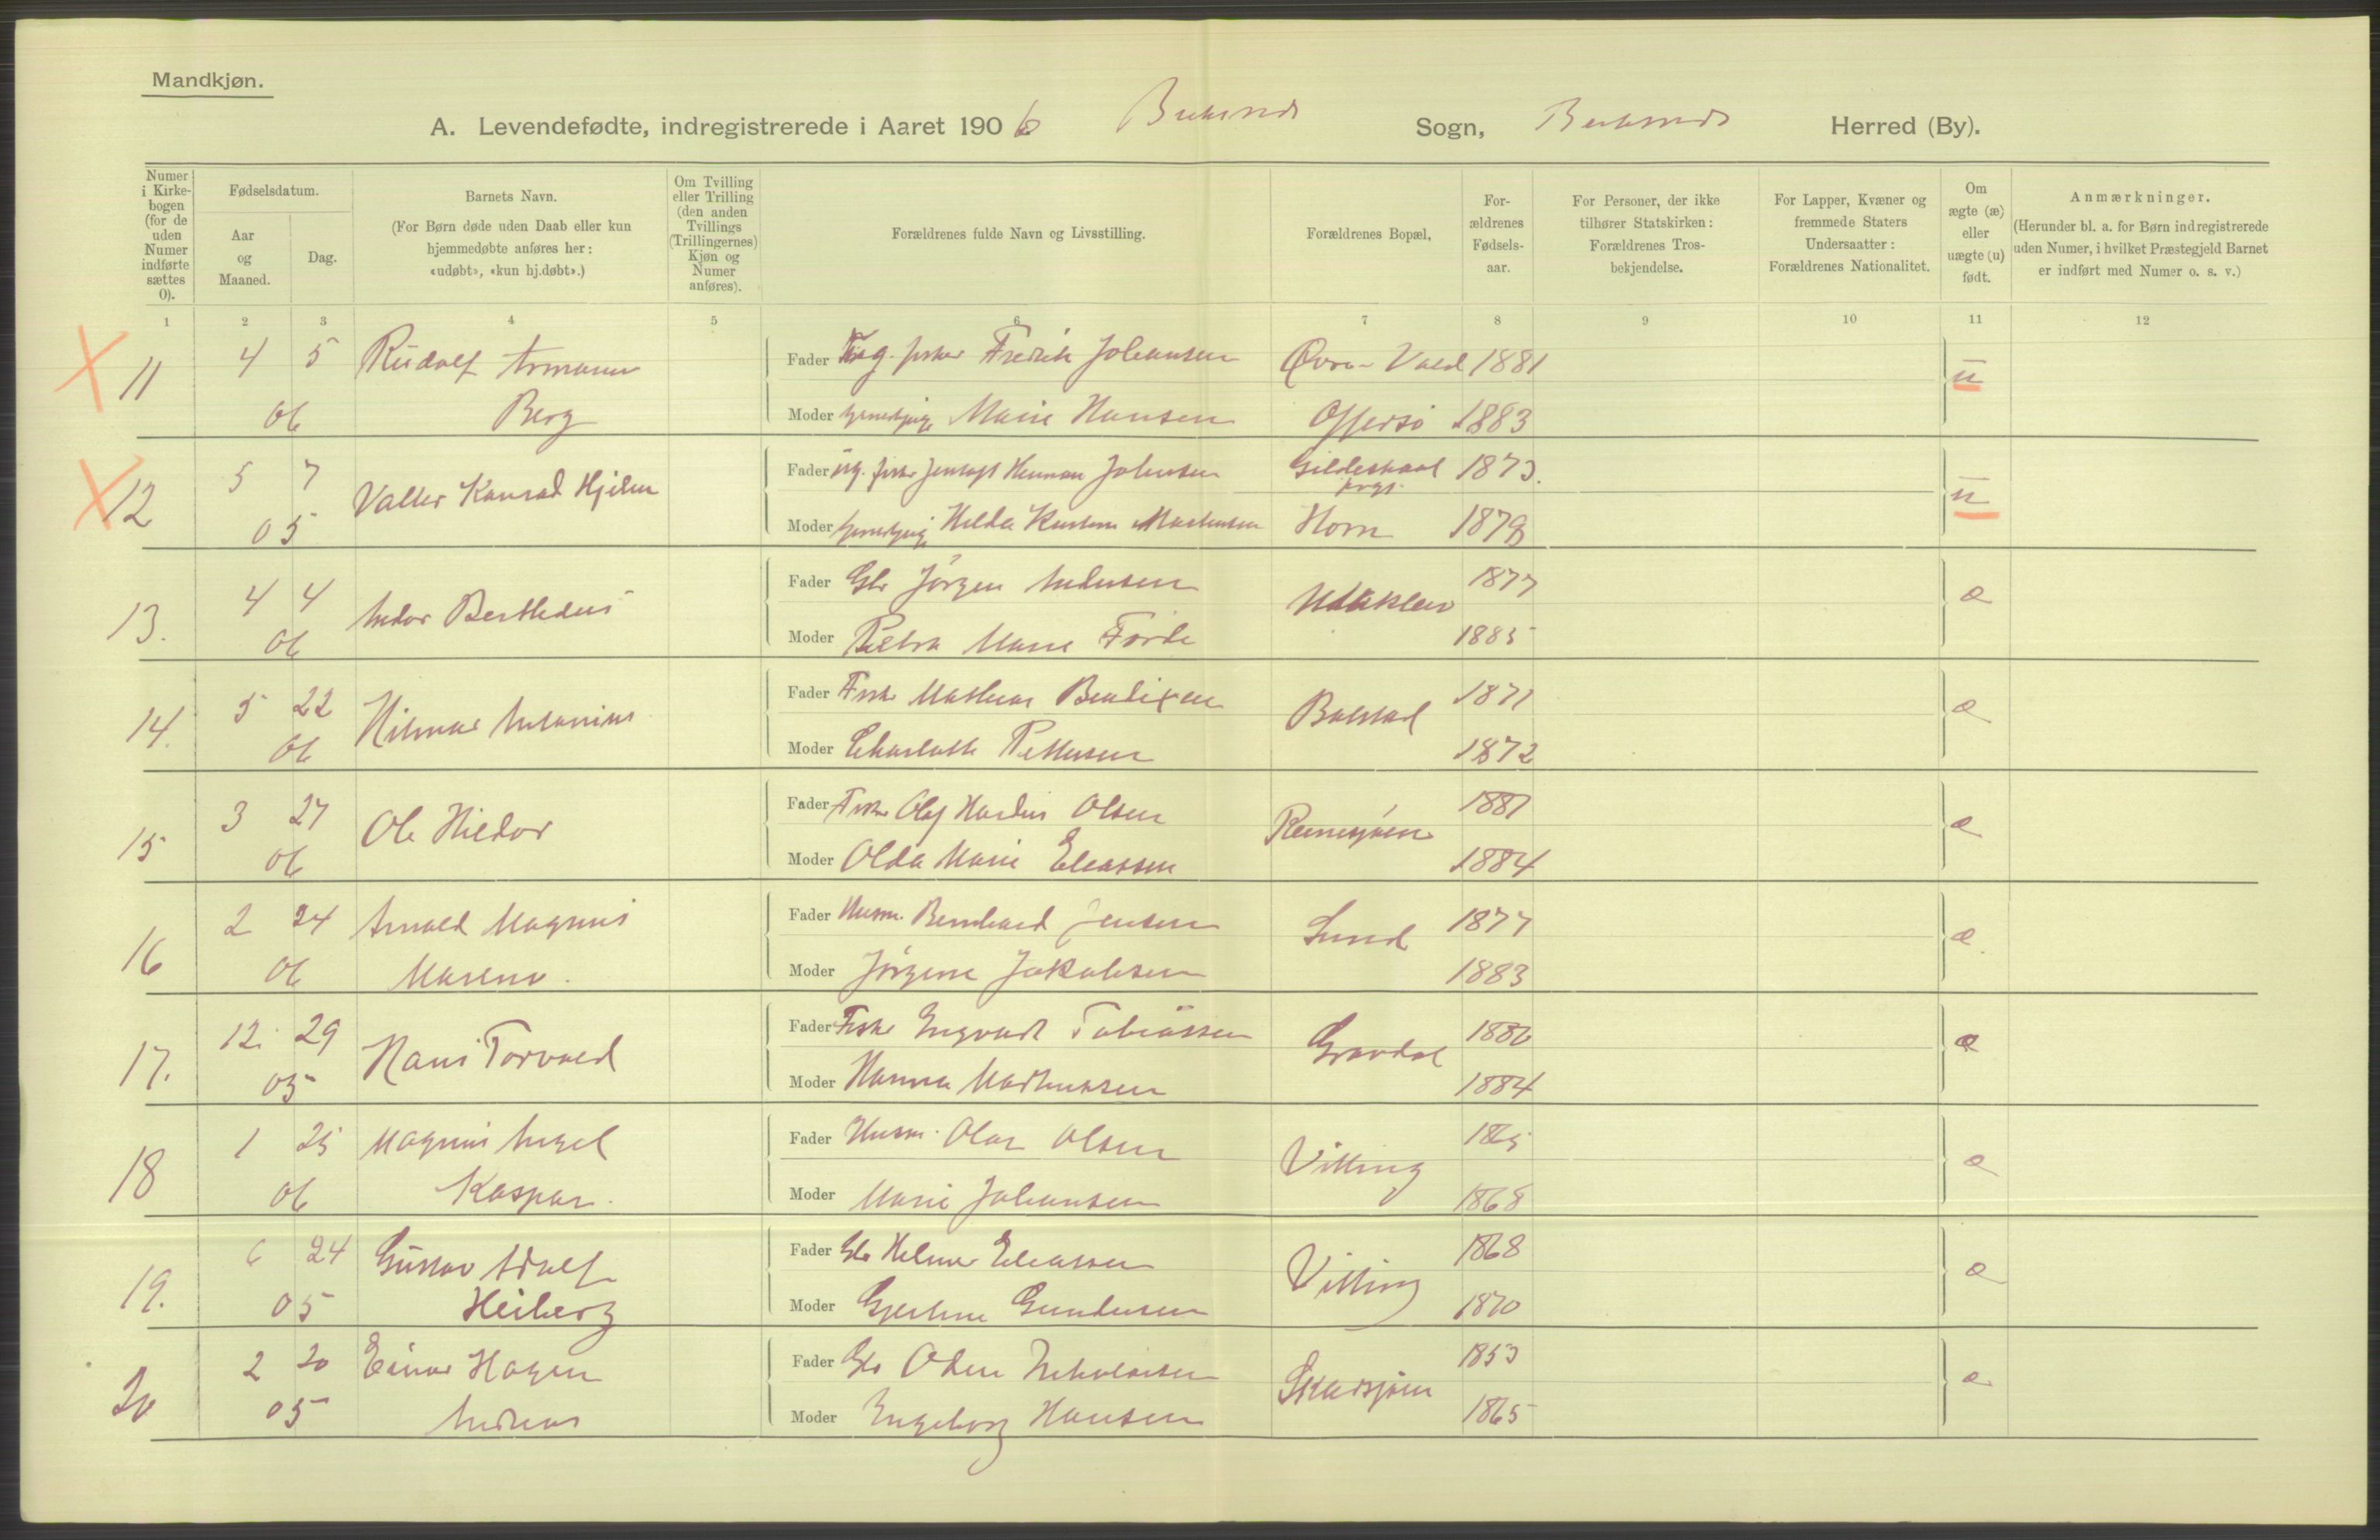 Mandkjøn.
A. Levendefødte, indregistrerede i Aaret 1906 Buksnes Sogn, Buksnes Herred (By).
Numer i Kirkebogen (for de uden Numer indførte sættes 0).
Fødselsdatum.
Aar og Maaned.
Dag.
Barnets Navn.
(For Børn døde uden Daab eller kun hjemmedøbte anføres her: «udøbt», «kun hj.døbt».)
Om Tvilling eller Trilling (den anden Tvillings (Trillingernes) Kjøn og Numer anføres).
Forældrenes fulde Navn og Livsstilling.
Forældrenes Bopæl,
Forældrenes Fødselsaar.
For Personer, der ikke tilhører Statskirken: Forældrenes Trosbekjendelse.
For Lapper, Kvæner og fremmede Staters Undersaatter: Forældrenes Nationalitet.
Om ægte (æ) eller uægte (u) født.
Anmærkninger.
(Herunder bl. a. for Børn indregistrerede uden Numer, i hvilket Præstegjeld Barnet er indført med Numer o. s. v.)
1 2 3 4 5 6 7 8 9 10 11 12
X 11 4 5 Rudolf Armann Fader Ug. fisker Fredrik Johansen 1881 u
06 Berg Moder Marie Hansen Offersø 1883
X 12 5 7 Valter Konrad Hjelm Fader Ug. fisker Jentoft Herman Johansen Gildeskaal prgj. 1873. u
05 Moder Hilda Martensen Horn 1879
13. 4 4 Andor Bertheus Fader Gbr Jörgen Andersen Udakleiv 1877 æ
06 Moder Petra Marie 1885
14. 5 22 Hilmar Antonius Fader Fisker Mathias Bendixen Balstad 1871 æ
06 Moder Charlotte Pettersen 1872
15 3 27 Ole Hildor Fader Fisker Olaf Olsen 1881 æ
06 Moder Olda Marie Eleassen 1884
16 2 24 Arnold Magnus Fader Husm. Bernhard Jensen Sund 1877 æ
06 Moder Jörgine Jakobsen 1883
17. 12 29 Hans Torvald Fader Fisker Engvart Tobiassen Gravdal 1880 æ
05 Moder Hanna Mathiassen 1884
18 1 25 Magnus Angel Fader Husm. Olav Olsen Vitting 1865 æ
06 Kaspar Moder Marie Johansen 1868
19. 6 24 Gustav Adolf Fader Gbr Helmer Eleassen Vitting 1868 æ
05 Heiberg Moder Gjertine Gundersen 1870
20 2 20 Einar Hagen Fader Gbr Odin Nikolaisen Skarsjöen 1853 æ
05 Andreas Moder Engeborg Hansen 1865